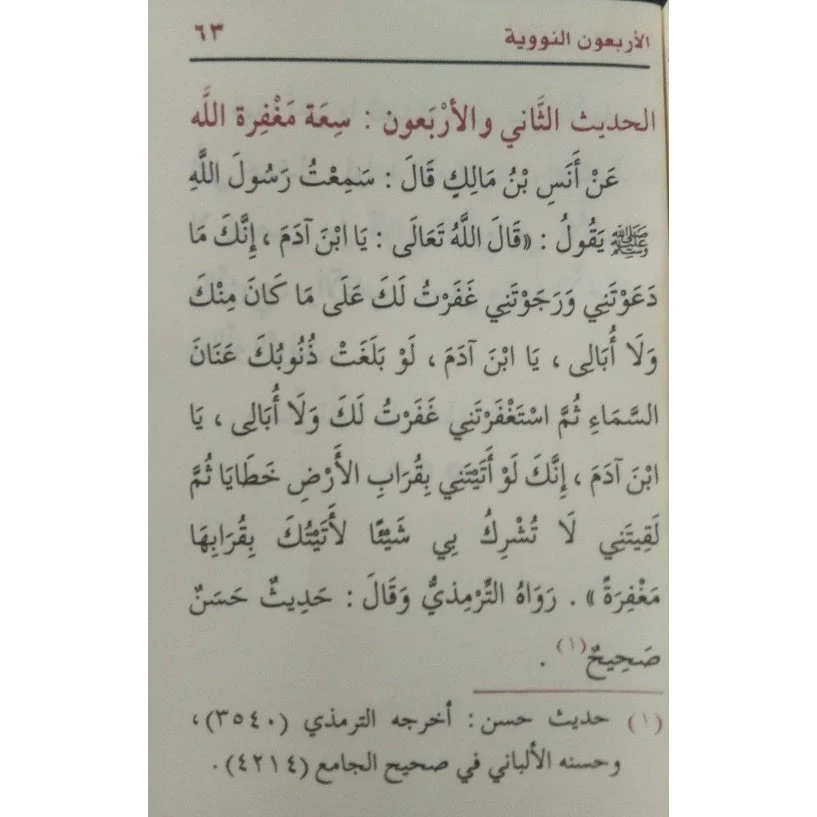 الأربعون النووية ٦٣
الحديث الثَّاني والأرْبَعون : سِعَة مَغْفِرة اللَّه
عَنْ أَنَسِ بْنُ مَالِكٍ قَالَ : سَمِعْتُ رَسُولَ اللَّهِ
ﷺ يَقُولُ : «قَالَ اللَّهُ تَعَالَى : يَا ابْنَ آدَمَ ، إِنَّكَ مَا
دَعَوْتَنِي وَرَجَوْتَنِي غَفَرْتُ لَكَ عَلَى مَا كَانَ مِنْكَ
وَلَا أُبَالِى ، يَا ابْنَ آدَمَ ، لَوْ بَلَغَتْ ذُنُوبُكَ عَنَانَ
السَّمَاءِ ثُمَّ اسْتَغْفَرْتَنِي غَفَرْتُ لَكَ وَلَا أُبَالِى ، يَا
ابْنَ آدَمَ ، إِنَّكَ لَوْ أَتَيْتَنِي بِقُرَابِ الأَرْضِ خَطَايَا ثُمَّ
لَقِيتَنِي لَا تُشْرِكُ بِي شَيْئًا لأَتَيْتُكَ بِقُرَابِهَا
مَغْفِرَةً» . رَوَاهُ التِّرْمِذيُّ وَقَالَ : حَدِيثٌ حَسَنٌ
صَحِيحٌ(١) .
(١) حديث حسن : أخرجه الترمذي (٣٥٤٠) ،
وحسنه الألباني في صحيح الجامع (٤٢١٤) .